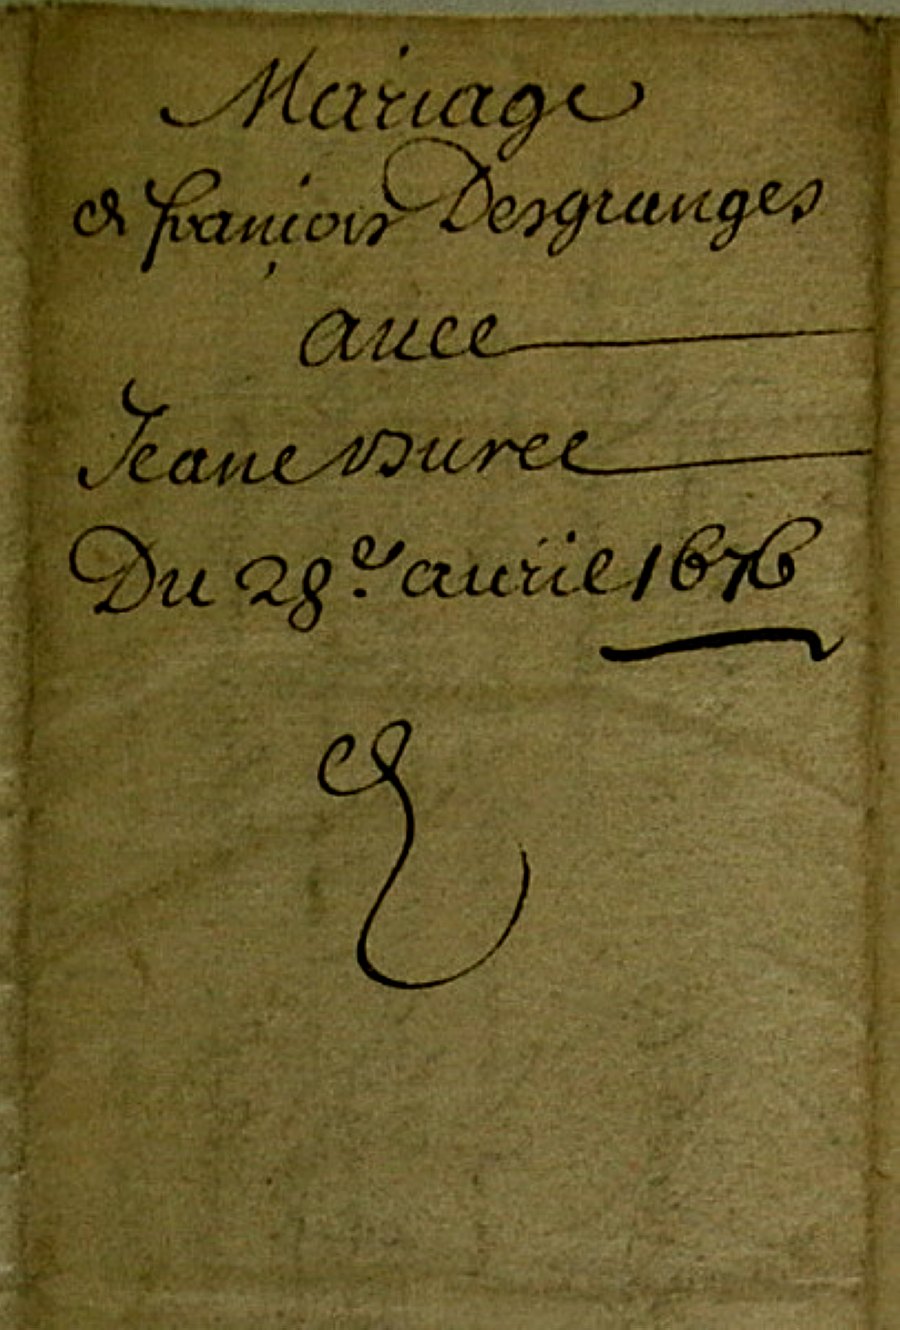 Mariage
de françois Desgranges
auec
Jeane Duree
Du 28.e auril 1676